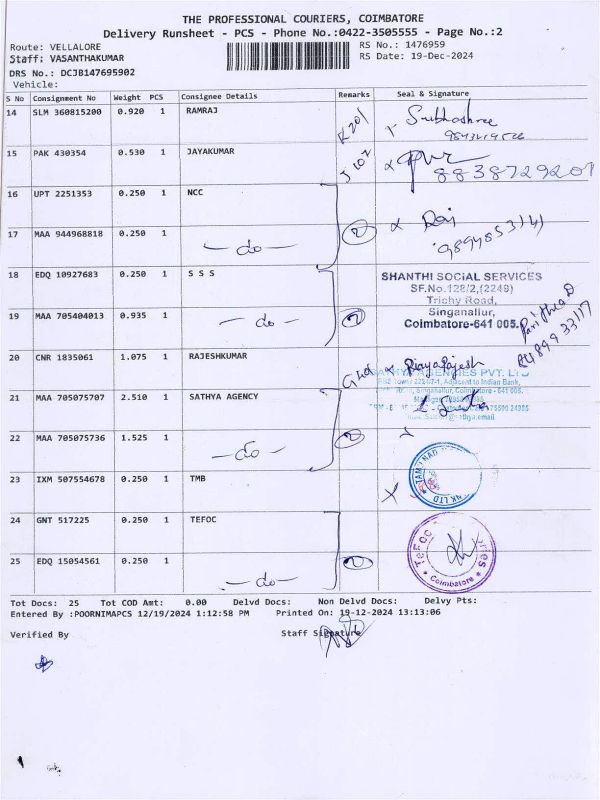 THE PROFESSIONAL COURIERS, COIMBATORE
Delivery Runsheet - PCS - Phone No.:0422-3505555 - Page No.:2
Route: VELLALORE
RS No.: 1476959
Staff: VASANTHAKUMAR
RS Date: 19-Dec-2024
DRS No.: DCJB147695902
Vehicle:
S No Consignment No Weight PCS Consignee Details Remarks Seal & Signature
14 SLM 360815200 0.920 1 RAMRAJ K201 Subhashree
15 PAK 430354 0.530 1 JAYAKUMAR J102
8838729201
16 UPT 2251353 0.250 1 NCC
17 MAA 944968818 0.250 1 -do- 2 9894853141
18 EDQ 10927683 0.250 1 S S S
SHANTHI SOCIAL SERVICES
SF.No.128/2,(2248)
Trichy Road,
Singanallur,
Coimbatore-641 005.
19 MAA 705404013 0.935 1 -do- 2
20 CNR 1835061 1.075 1 RAJESHKUMAR
SATHYA AGENCIES PVT. LTD
21 MAA 705075707 2.510 1 SATHYA AGENCY
22 MAA 705075736 1.525 1 -do- 2
23 IXM 507554678 0.250 1 TMB
24 GNT 517225 0.250 1 TEFOC
TEFOC
Coimbatore
25 EDQ 15054561 0.250 1 -do- 2
Tot Docs: 25 Tot COD Amt: 0.00 Delvd Docs: Non Delvd Docs: Delvy Pts:
Entered By :POORNIMAPCS 12/19/2024 1:12:58 PM Printed On: 19-12-2024 13:13:06
Verified By Staff Signature